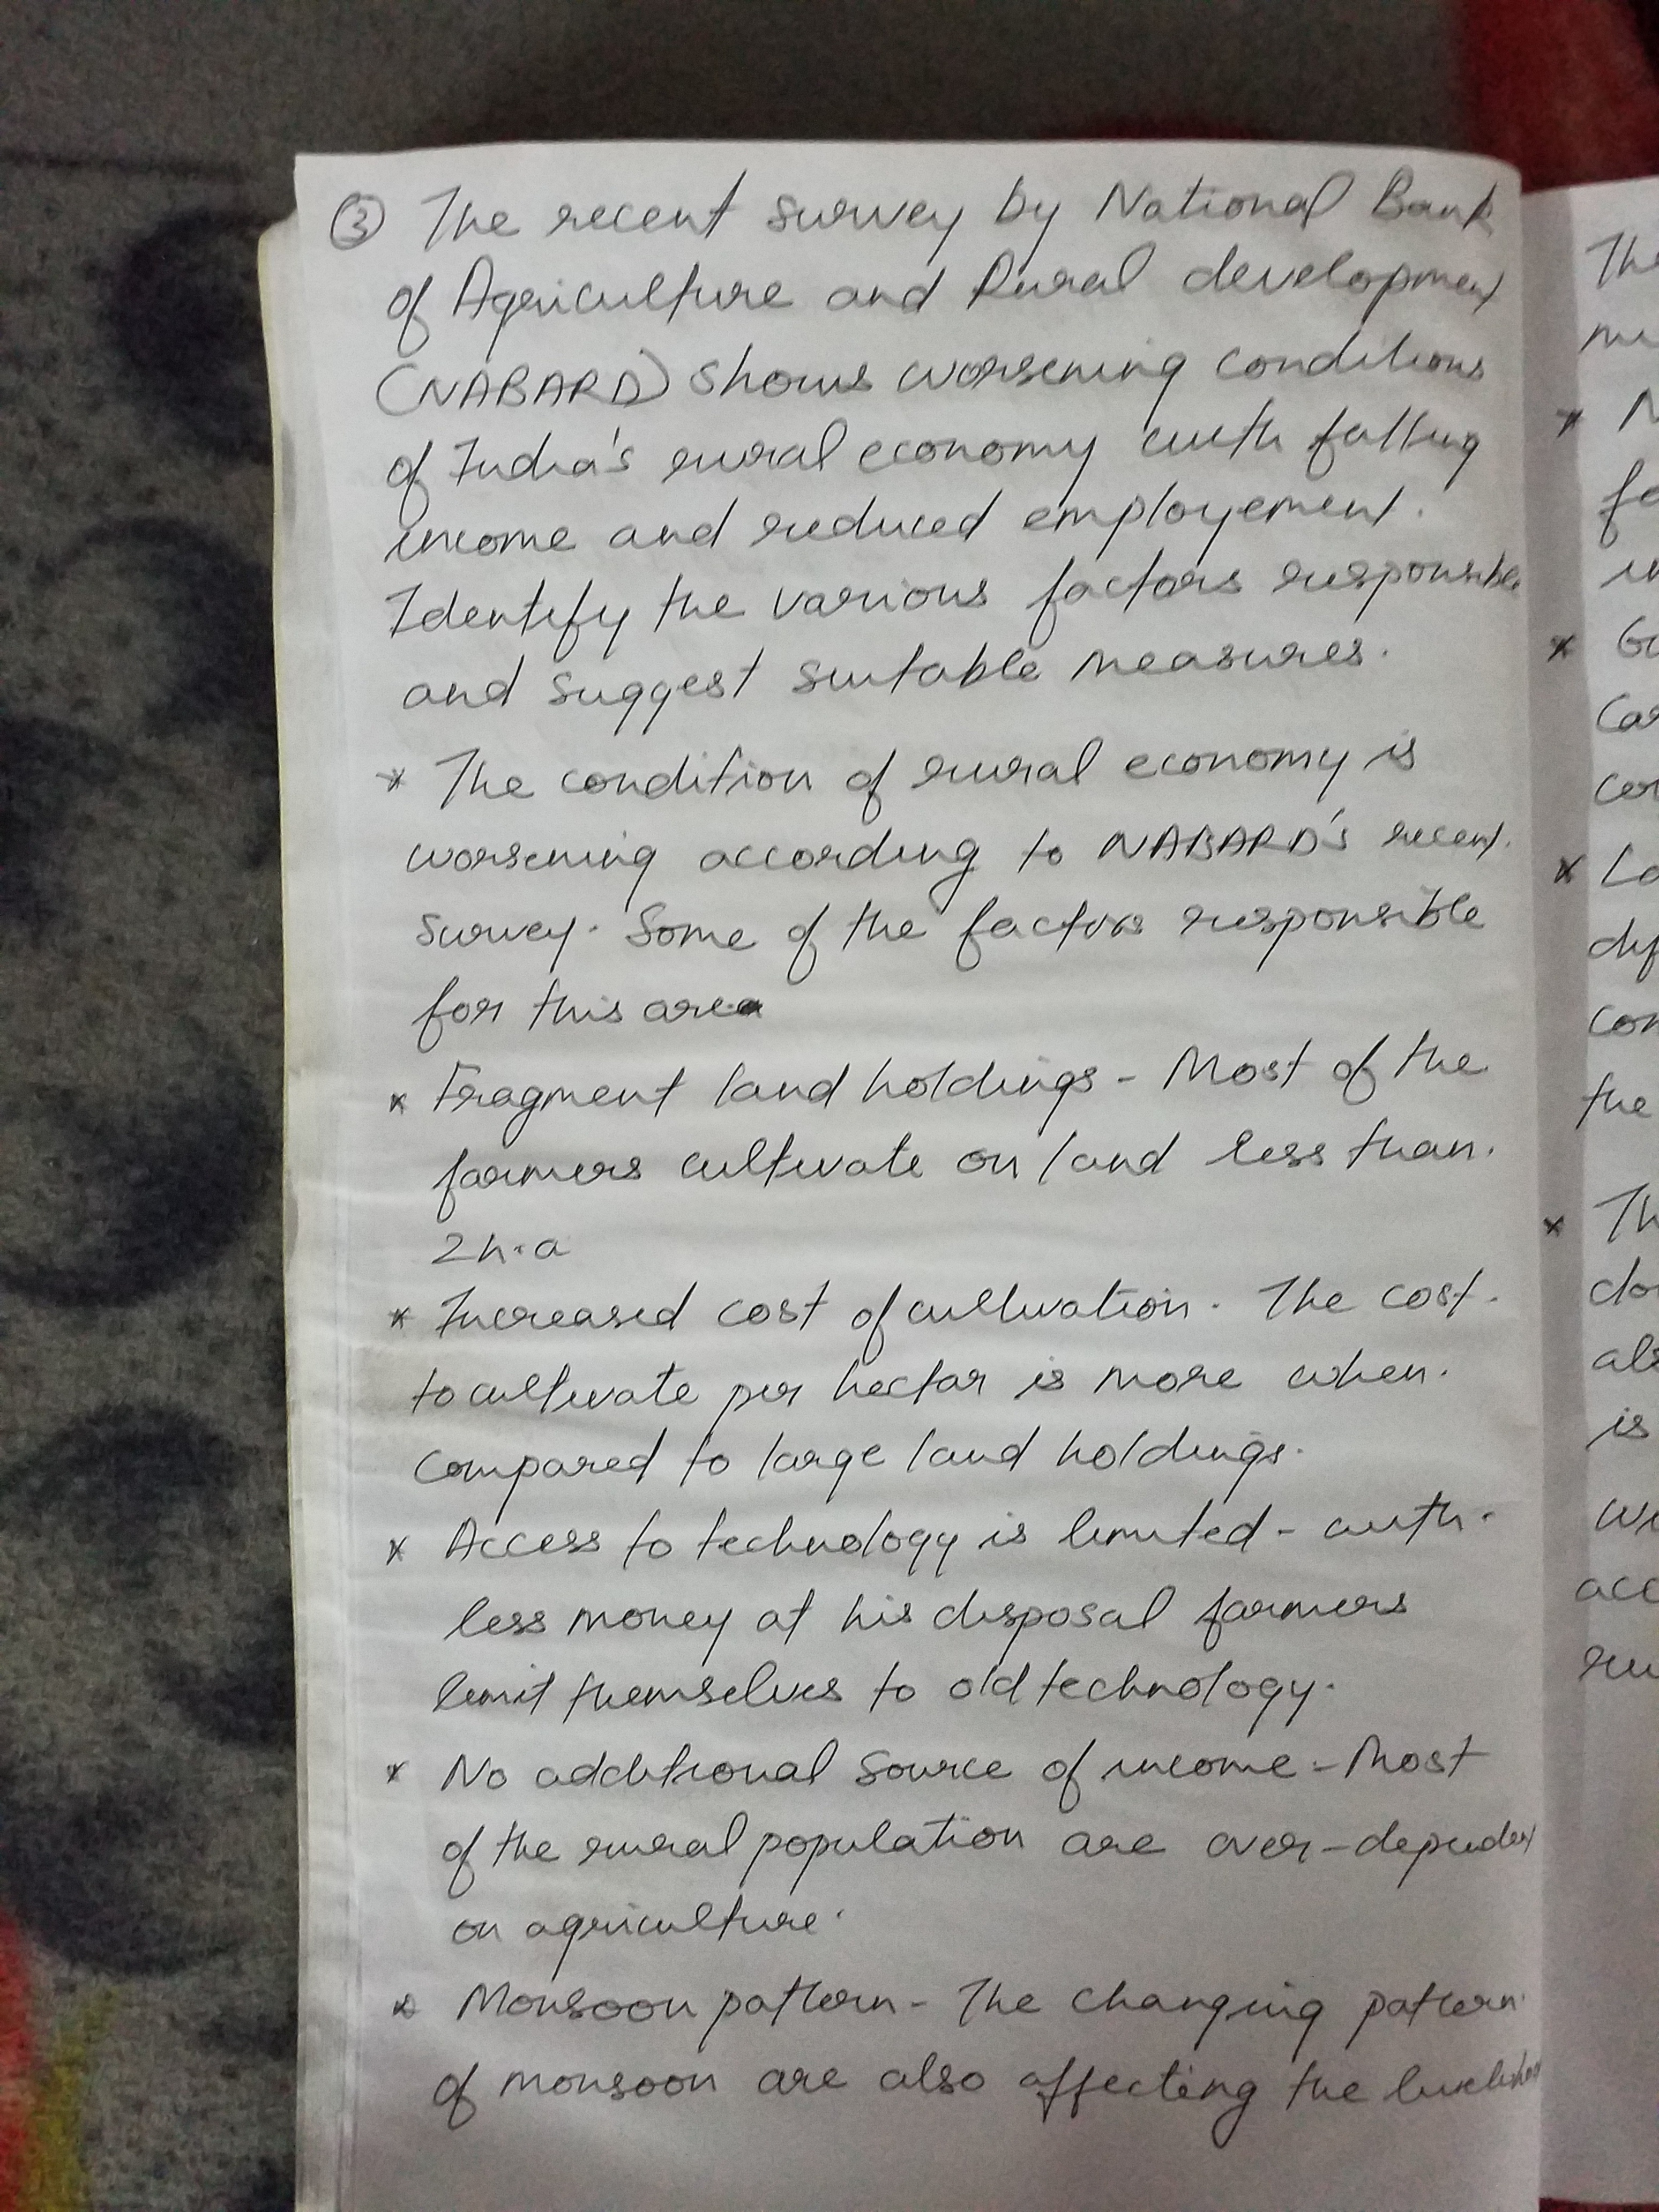 ③ The recent survey by National Bank
of Agriculture and Rural development
(NABARD) shows worsening conditions
of India's rural economy with falling
income and reduced employement.
Identify the various factors responsible
and suggest suitable measures.
* The condition of rural economy is
worsening according to NABARD's recent.
survey. Some of the factors responsible
for this are
* Fragment land holdings - Most of the
farmers cultivate on land less than.
2h.a
* Increased cost of cultivation. The cost.
to cultivate per hectar is more when.
compared to large land holdings.
* Access to technology is limited - with.
less money at his disposal farmers
limit themselves to old technology.
* No additional source of income - Most
of the rural population are over-dependent
on agriculture.
* Monsoon pattern - The changing pattern.
of monsoon are also affecting the livelihood
The
* N
* G
* La
the
* Th
als
is
acc